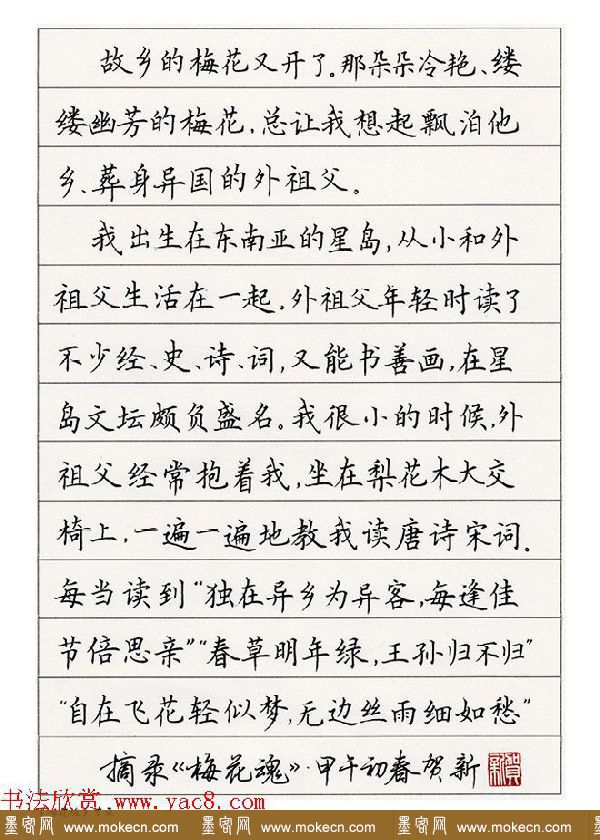 故乡的梅花又开了。那朵朵冷艳、缕
缕幽芳的梅花,总让我想起飘泊他
乡、葬身异国的外祖父。
我出生在东南亚的星岛,从小和外
祖父生活在一起。外祖父年轻时读了
不少经、史、诗、词,又能书善画,在星
岛文坛颇负盛名。我很小的时候,外
祖父经常抱着我,坐在梨花木大交
椅上,一遍一遍地教我读唐诗宋词。
每当读到“独在异乡为异客,每逢佳
节倍思亲”“春草明年绿,王孙归不归”
“自在飞花轻似梦,无边丝雨细如愁”
摘录《梅花魂》·甲午初春贺新
书法欣赏 www.yac8.com
墨客网 www.mokecn.com 墨客网 www.mokecn.com 墨客网 www.mokecn.com